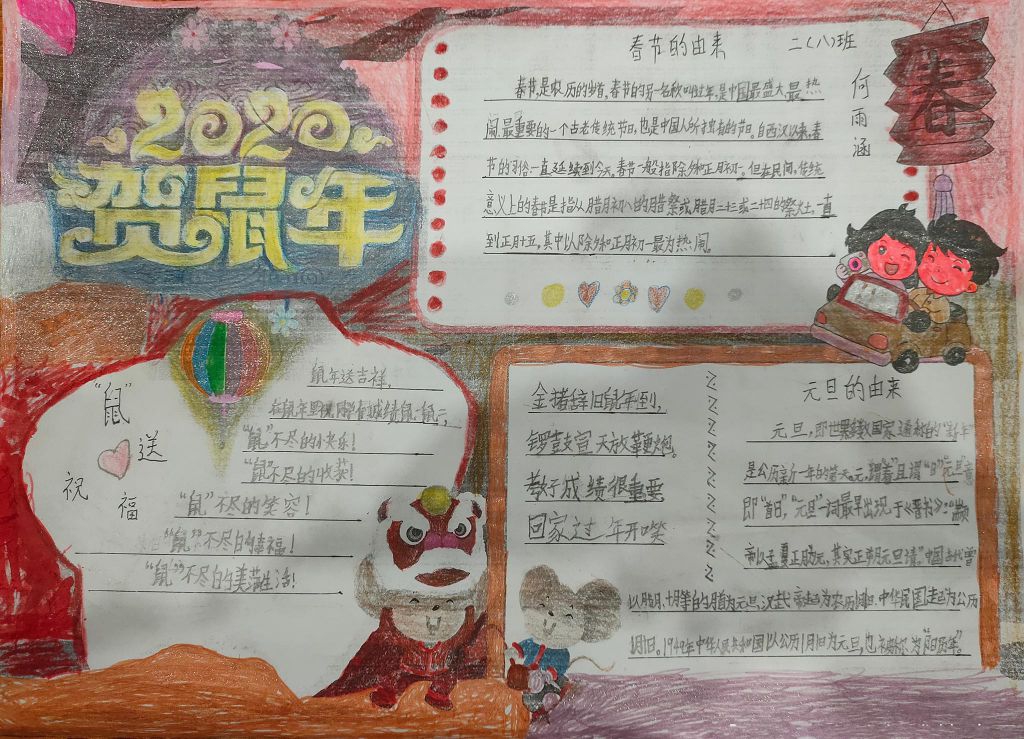 2020
贺鼠年
春节的由来 二(八)班
何雨涵
春
春节,是农历的岁首,春节的另一名称叫过年,是中国最盛大、最热
闹、最重要的一个古老传统节日。也是中国人所独有的节日。自西汉以来,春
节的习俗一直延续到今天。春节一般指除夕和正月初一。但在民间,传统
意义上的春节是指从腊月初八的腊祭或腊月二十三或二十四的祭灶,一直
到正月十五,其中以除夕和正月初一最为热闹。
"鼠"
送
祝
福
鼠年送吉祥,
在鼠年里祝同学们成绩鼠一鼠二,
"鼠"不尽的快乐!
"鼠"不尽的收获!
"鼠"不尽的笑容!
"鼠"不尽的幸福!
"鼠"不尽的美满生活!
金猪辞旧鼠年到,
锣鼓喧天放鞭炮。
学习成绩很重要
回家过年开笑
元旦的由来
元旦,即世界多数国家通称的"新年"
是公历新一年的第一天。元,谓"首";旦,谓"日";"元旦"意
即"首日","元旦"一词最早出现于《晋书》:"颛
帝以孟夏正月为元,其实正朔元旦
中华民国起为公历
1月1日。1949年中华人民共和国以公历1月1日为元旦,也被称为"阳历年"。